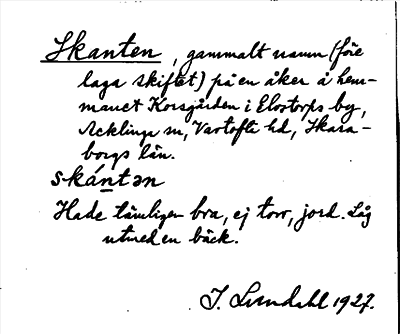 Skanten, gammalt namn (före
laga skiftet) på en åker å hem-
manet Korsgården i Elostorps by,
Acklinga sn, Vartofta hd, Skara-
borgs län.
skántən
Hade tämligen bra, ej torr, jord. Låg
utmed en bäck.
J. Lundahl 1927.